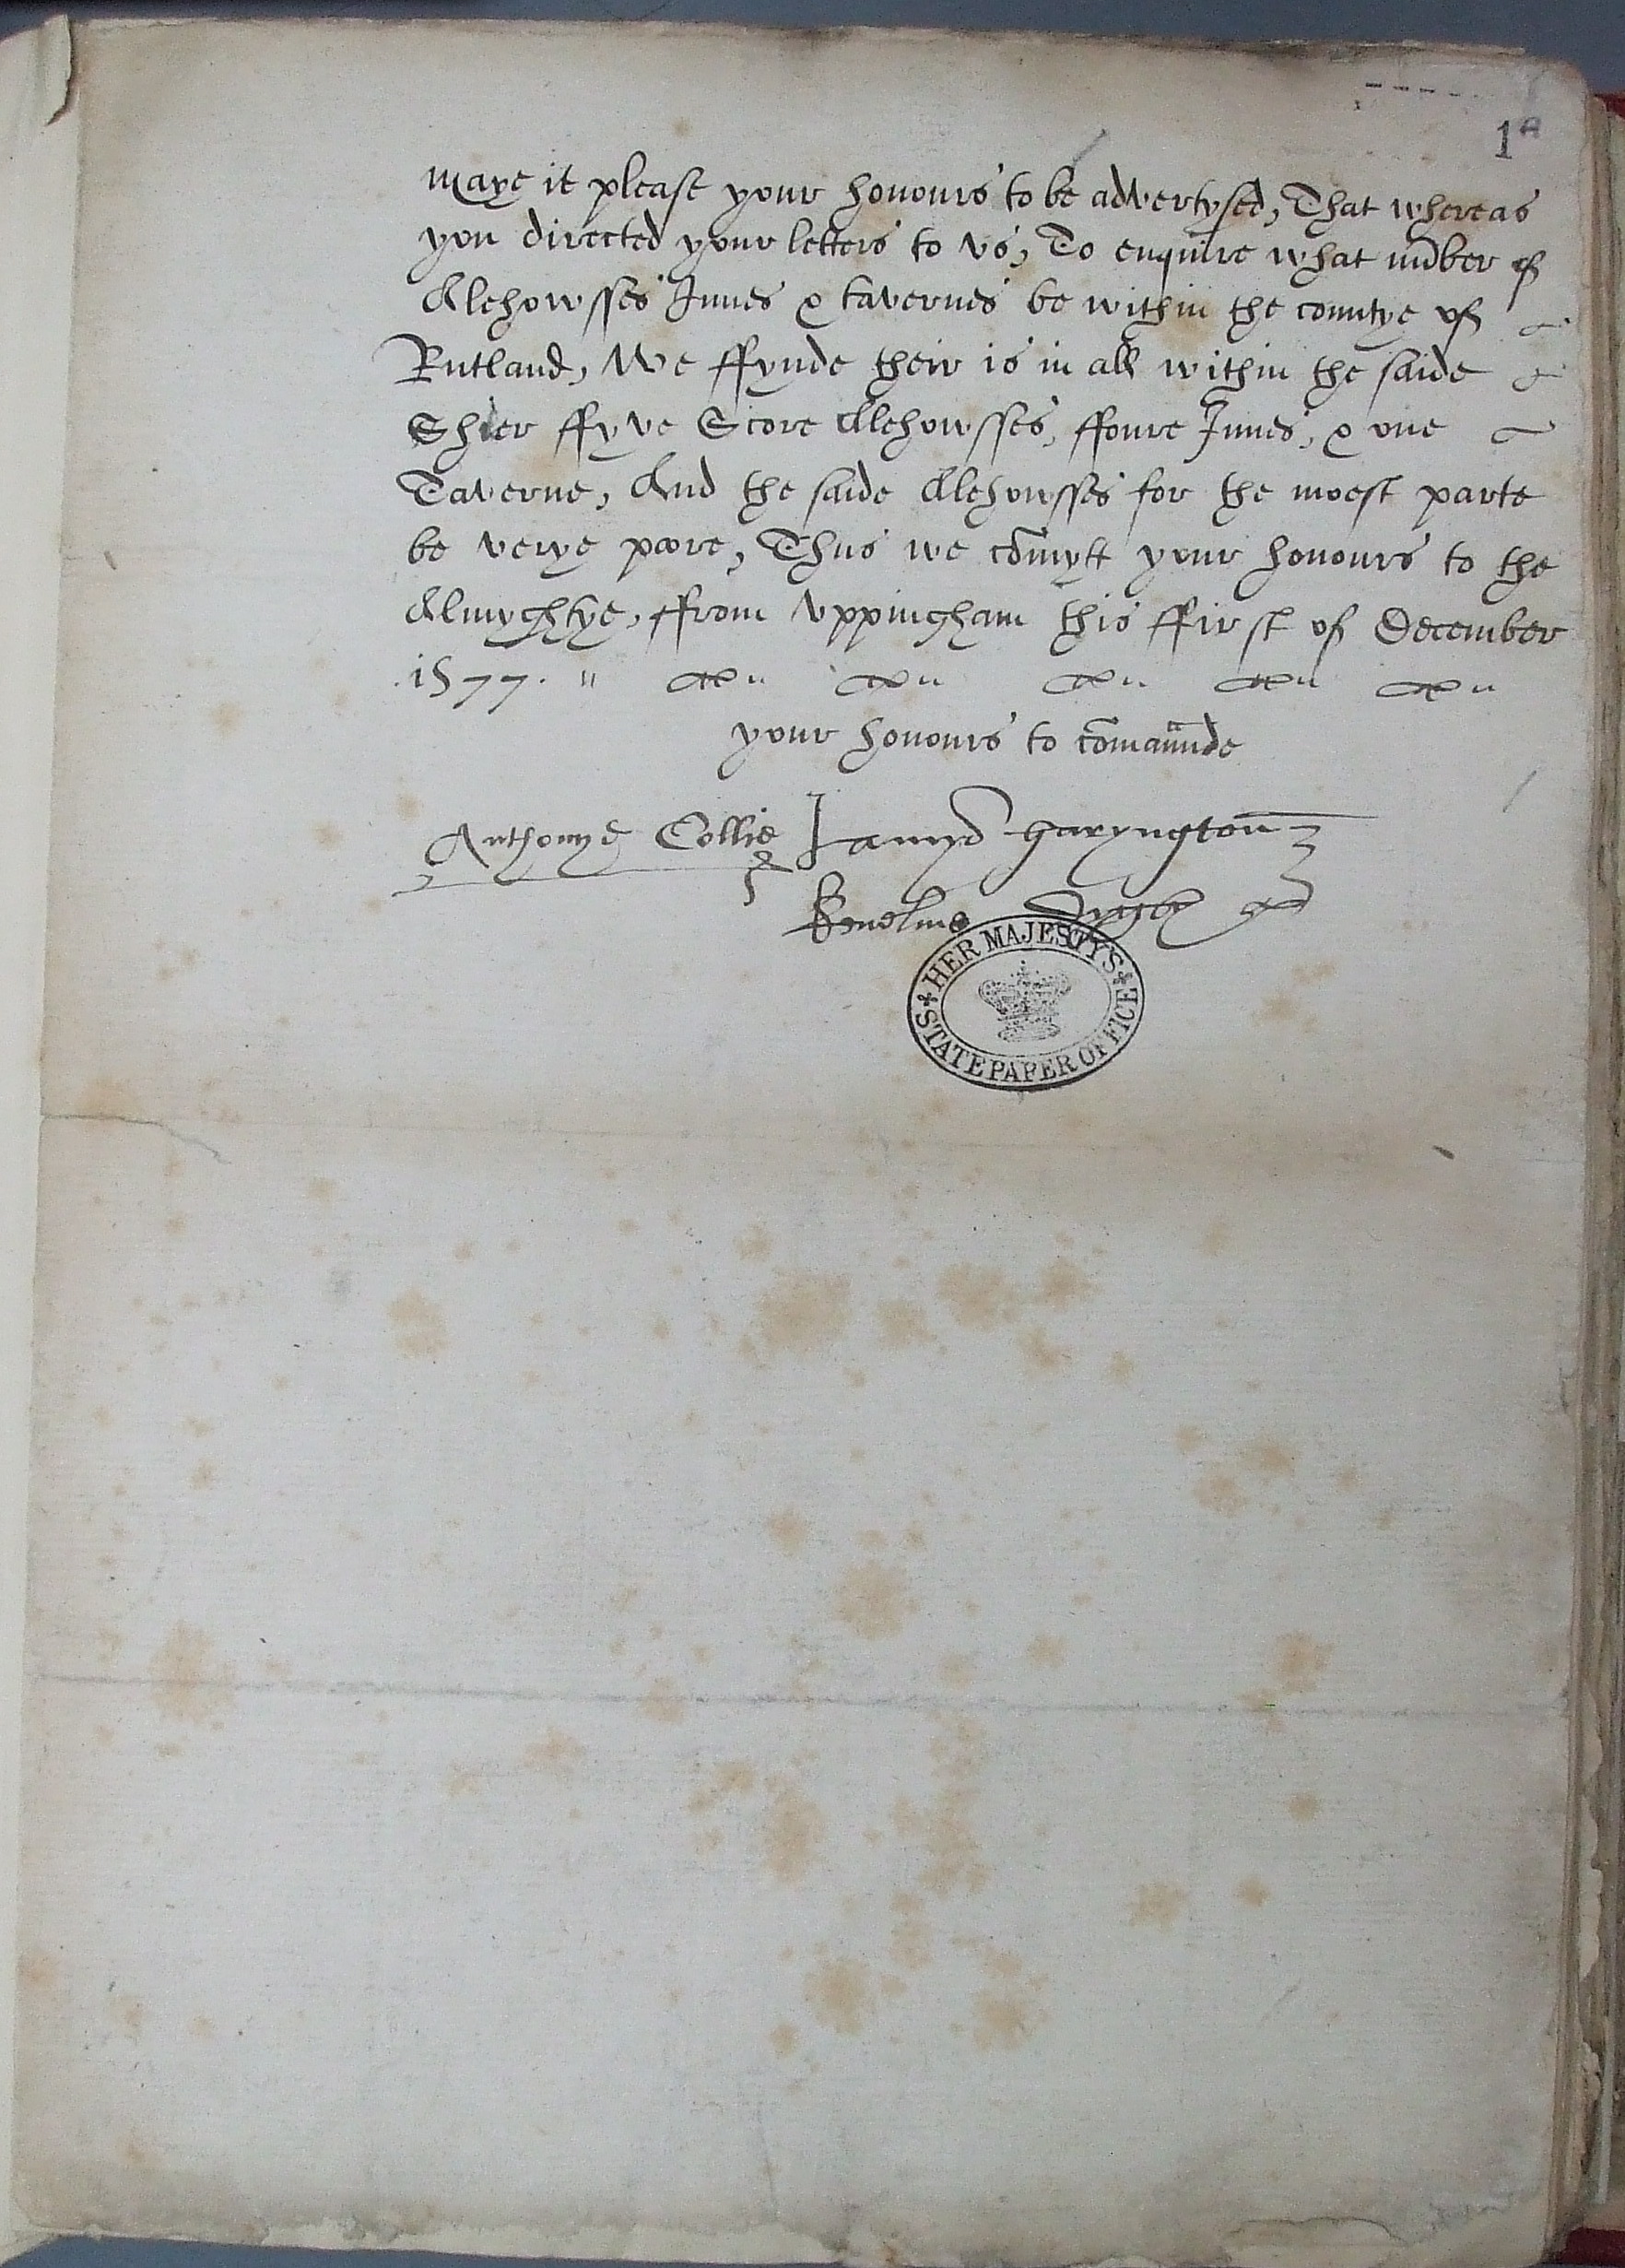 1A
Maye it please your honours to be advertysed, That whereas
you directed your letters to vs, To enquire what nu̅ber of
Alehowsses Innes & tavernes be within the countye of
Rutland, We ffynde their is in all within the saide
Shier ffyve Score Alehowsses, ffoure Innes, & one
Taverne, And the saide Alehowsses for the moest parte
be verye poore, Thus we co̅mytt your honours to the
Almyghtye, ffrom vppingham this ffirst of December
.1577.
your honours to co̅mau̅nde
Anthonye Collie Iamys Haryngton
Kenelme Dygby
HER MAJESTY'S
STATE PAPER OFFICE